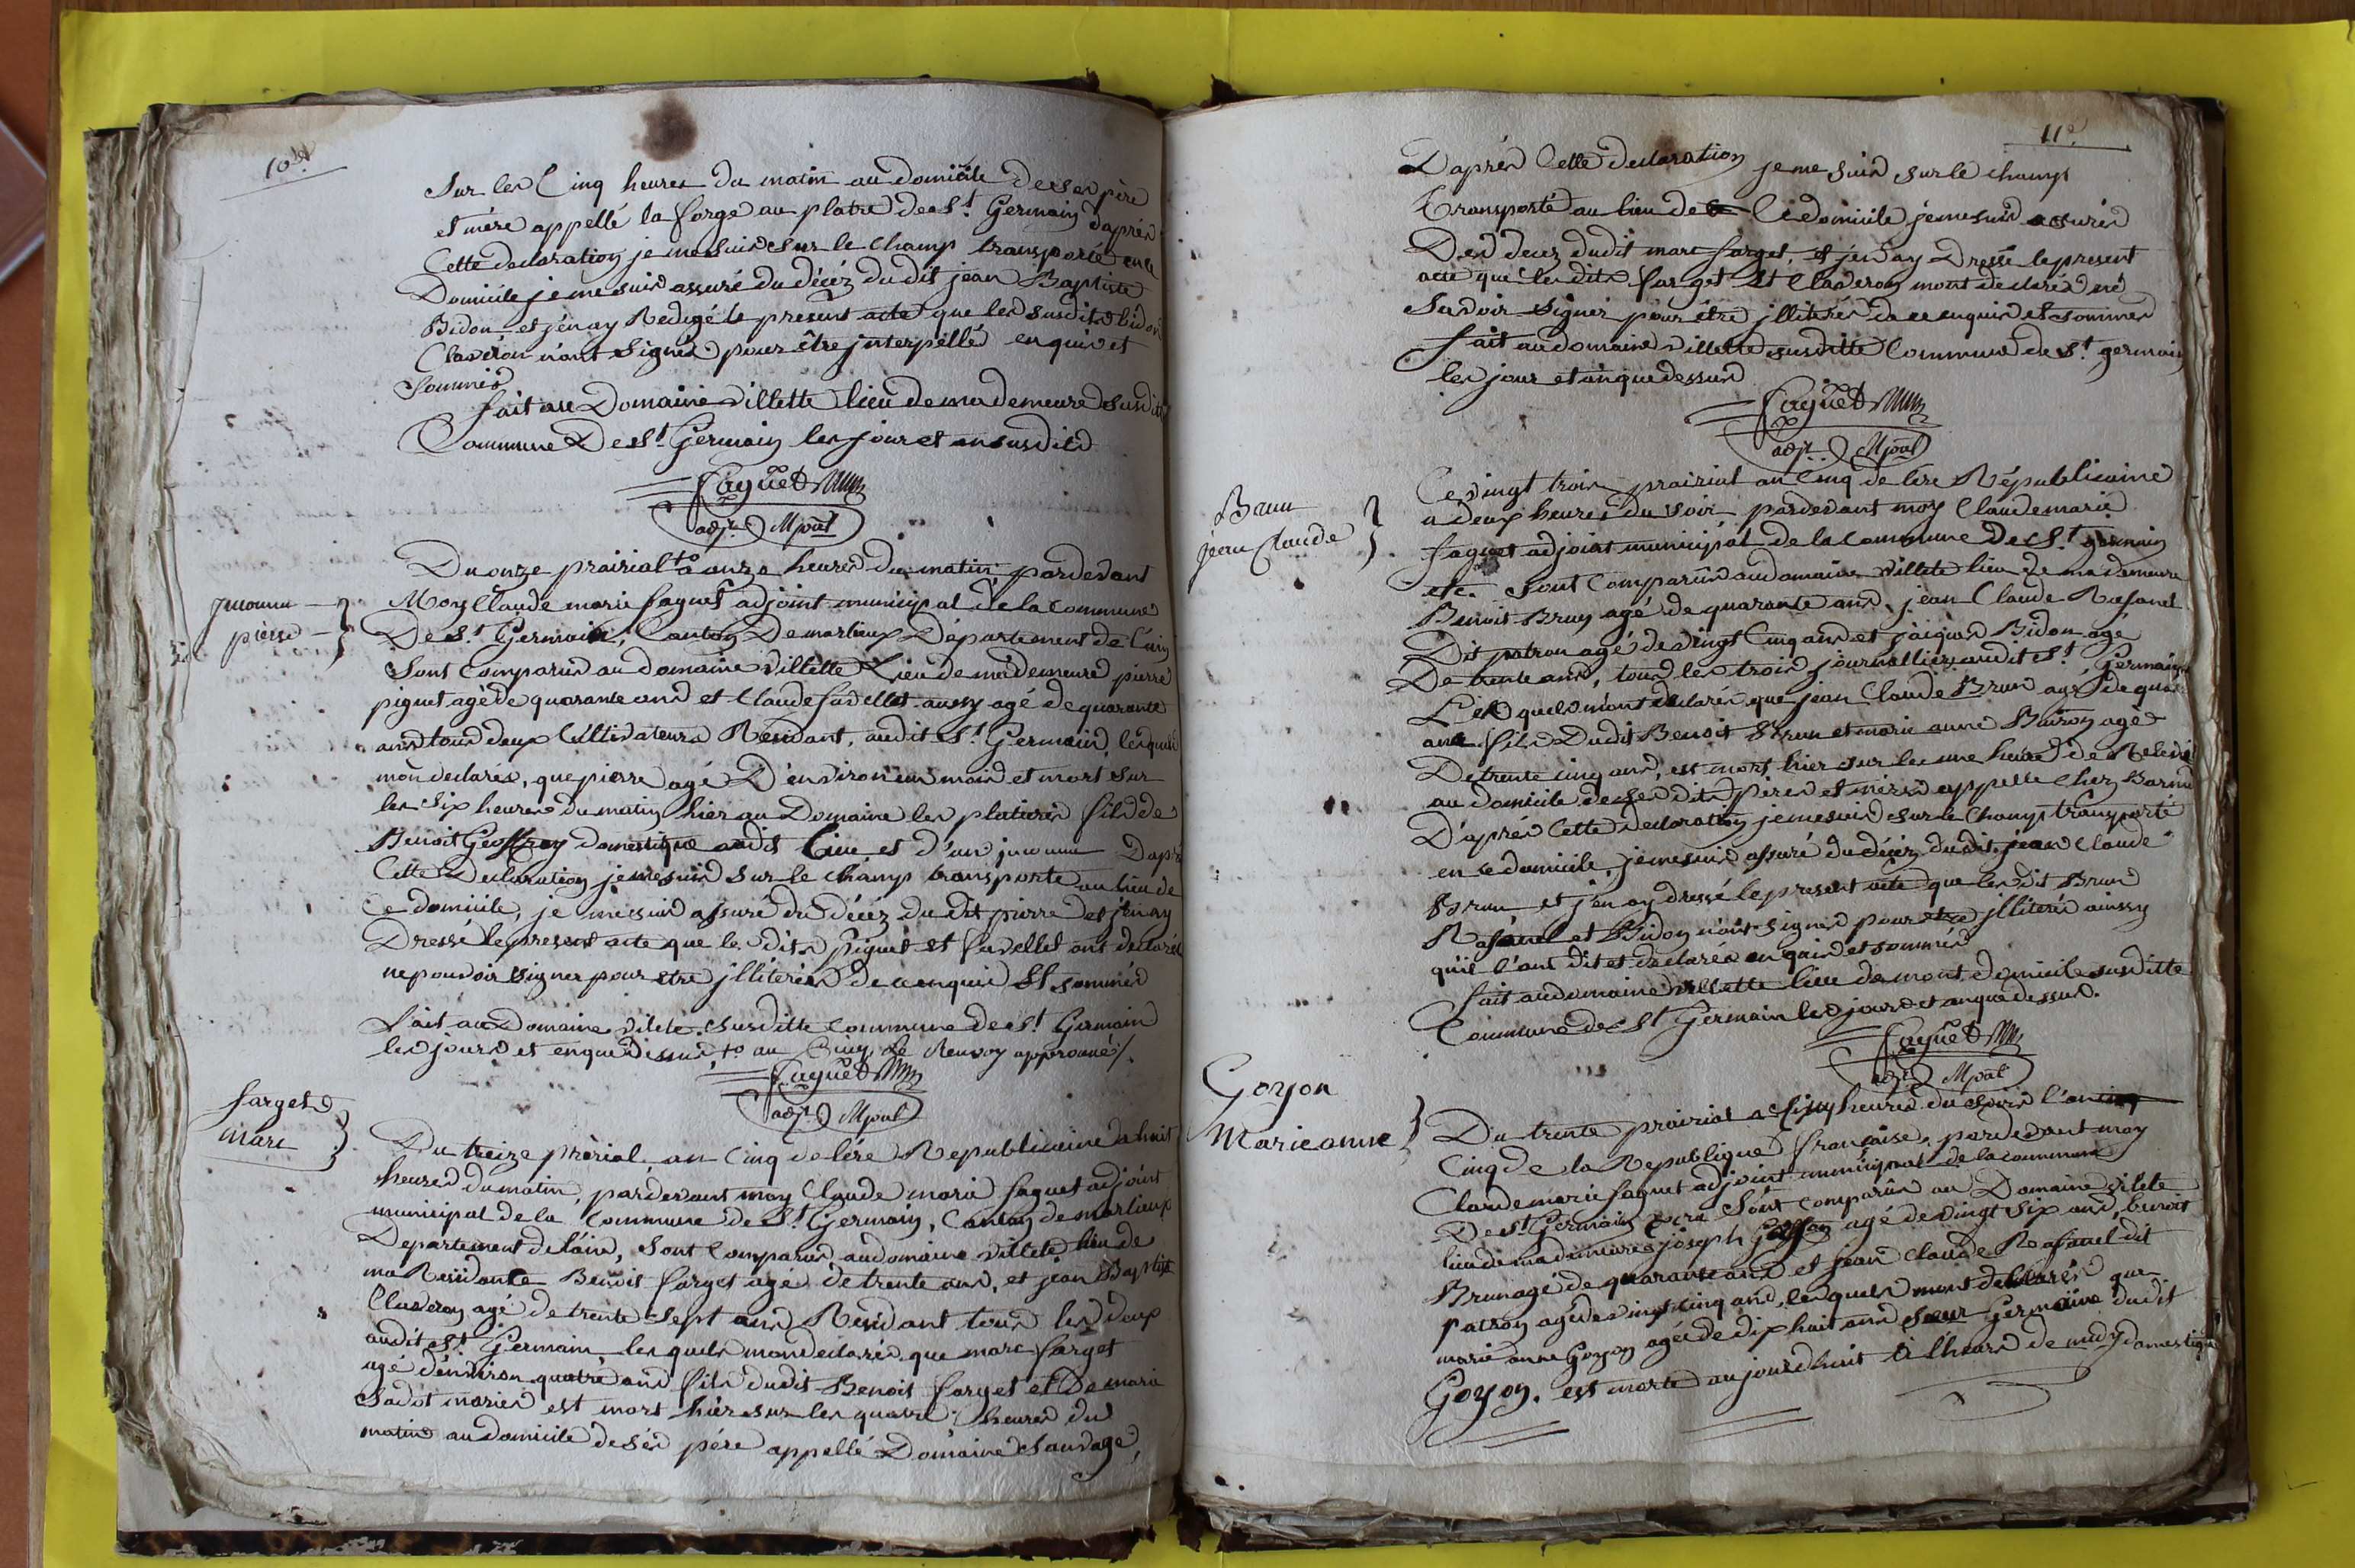 10e
Sur les Cinq heures du matin au domicile de ses père
et mère appellé la forge au platre de St Germain d'après
Cette declaration je me suis sur le champ transporté en ce
Domicile je me suis assuré du décéz du dit jean Baptiste
Bidon et j'en ay Redigé le present acte que les susdits bidon
Claveron n'ont Signés pour être interpellé enquis et
Sommés
fait au Domaine Villette lieu de ma demeure susditte
Commune De St Germain les jour et an susdits
Faguet
adjt Mpal
Du onze prairial to a onze heures du matin pardevant
jnconnu
pierre
Moy Claude marie faguet adjoint municipal de la commune
De St Germain, Canton De marlieux Département de l'ain
Sont Comparus au domaine Villette Lieu de ma demeure pierre
piguet agé de quarante ans et Claude favellet aussy agé de quarante
ans tous deux Cultivateurs Résidant, audit St Germain, lesquels
mon declarés, que pierre agé D'environ un mois et mort sur
les Six heures du matin hier au Domaine les platieres fils de
Benoit Geoffray domestique audit lieu et d'un jnconnu Daprès
Cette Declaration je me suis Sur le champ transporté au lieu de
Ce domicile, je me suis assuré du décéz du dit pierre et j'en ay
Dressé le present acte que les dits piguet et favellet ont declarés
ne pouvoir signer pour etre jlliterés de ce enquis et sommés
Fait au Domaine Vilete susditte commune de St Germain
les jours et en que dessus, to an Cinq Le Renvoy approuvé/.
Faguet
adjt Mpal
farget
marc
Du treize prérial, an Cinq de l'ére Republicaine a huit
heures du matin, pardevant moy Claude marie faguet adjoint
municipal de la Commune de St Germain, Canton de marlieux
Département de l'ain, sont Comparus au domaine Villete lieu de
ma Residante Benoit farget agé de trente ans, et jean Baptiste
Claveron agé de trente Sept ans Residant tous les deux
audit St Germain, lesquels mon declarés que marc farget
agé d'environ quatre ans fils dudit Benoit farget et De marie
est mort hier sur les quatre heures du
matin au domicile de sés pére appellé Domaine Sauvage,
11e
D'après Cette declaration je me suis sur le champ
transporté au lieu de Ce domicile je me suis assurés
Des decez dudit marc farget, et j'en ay Dressé le present
acte que les dits farget et Claveron m'ont déclarés né
Savoir Signér pour être jlliterés de ce enquis et sommés
fait au domaine Villette susditte Commune de St germain
les jour et an que dessus
Faguet
adjt Mpal
Brun
jean Claude
Ce vingt trois prairial an Cinq de l'ére Républicaine
a deux heures du soir pardevant moy Claude marie
faguet adjoint municipal de la commune De St germain
etc. sont Comparûs au domaine Villete lieu de ma demeure
Benoit Brun agé de quarante ans, jean Claude Rafanel
Dit patron agé de vingt Cinq ans et jâiques Bidon agé
De trente ans, tous les trois journalliez audit St Germain
Lesquels m'ont declarés que jean Claude Brun agé de quatre
ans fils Dudit Benoit Brun et marie anne Buiron agé
De trente cinq ans, est mort hier sur les une heure de Relevé
au domicile de ses dits péres et méres appelle chez Barnu
D'après Cette declaration je me suis sur le Champ transporté
en ce domicile, je me suis assuré du décéz dudit jean Claude
Brun et j'en ay dressé le present acte que les dit Brun
Rafanel et Bidon n'ont signés pour etre jlliterés aunssy
qu'il l'ont dit et declarés enquis et sommés
fait au domaine Villette lieu de mont domicile susditte
Commune de St Germain les jours et an que dessus.
Faguet
adjt Mpal
Goyon
Marieanne
Du trente prairial a heures du soir l'an
Cinq de la Republique française, pardevant moy
Claude marie faguet adjoint municipal de la commune
De St Germain Sont comparûs au Domaine Vilete
lieu de ma demeure joseph Goyon agé de vingt six ans, benoit
Brun agé de quarante ans et jean Claude Rafanel dit
patron agé de vingt cinq ans, lesquels m'ont declarés que
marie anne Goyon agée de dix huit ans Seur Germaine dudit
Goyon. est morte aujourdhuit à l'heure de midy domestique